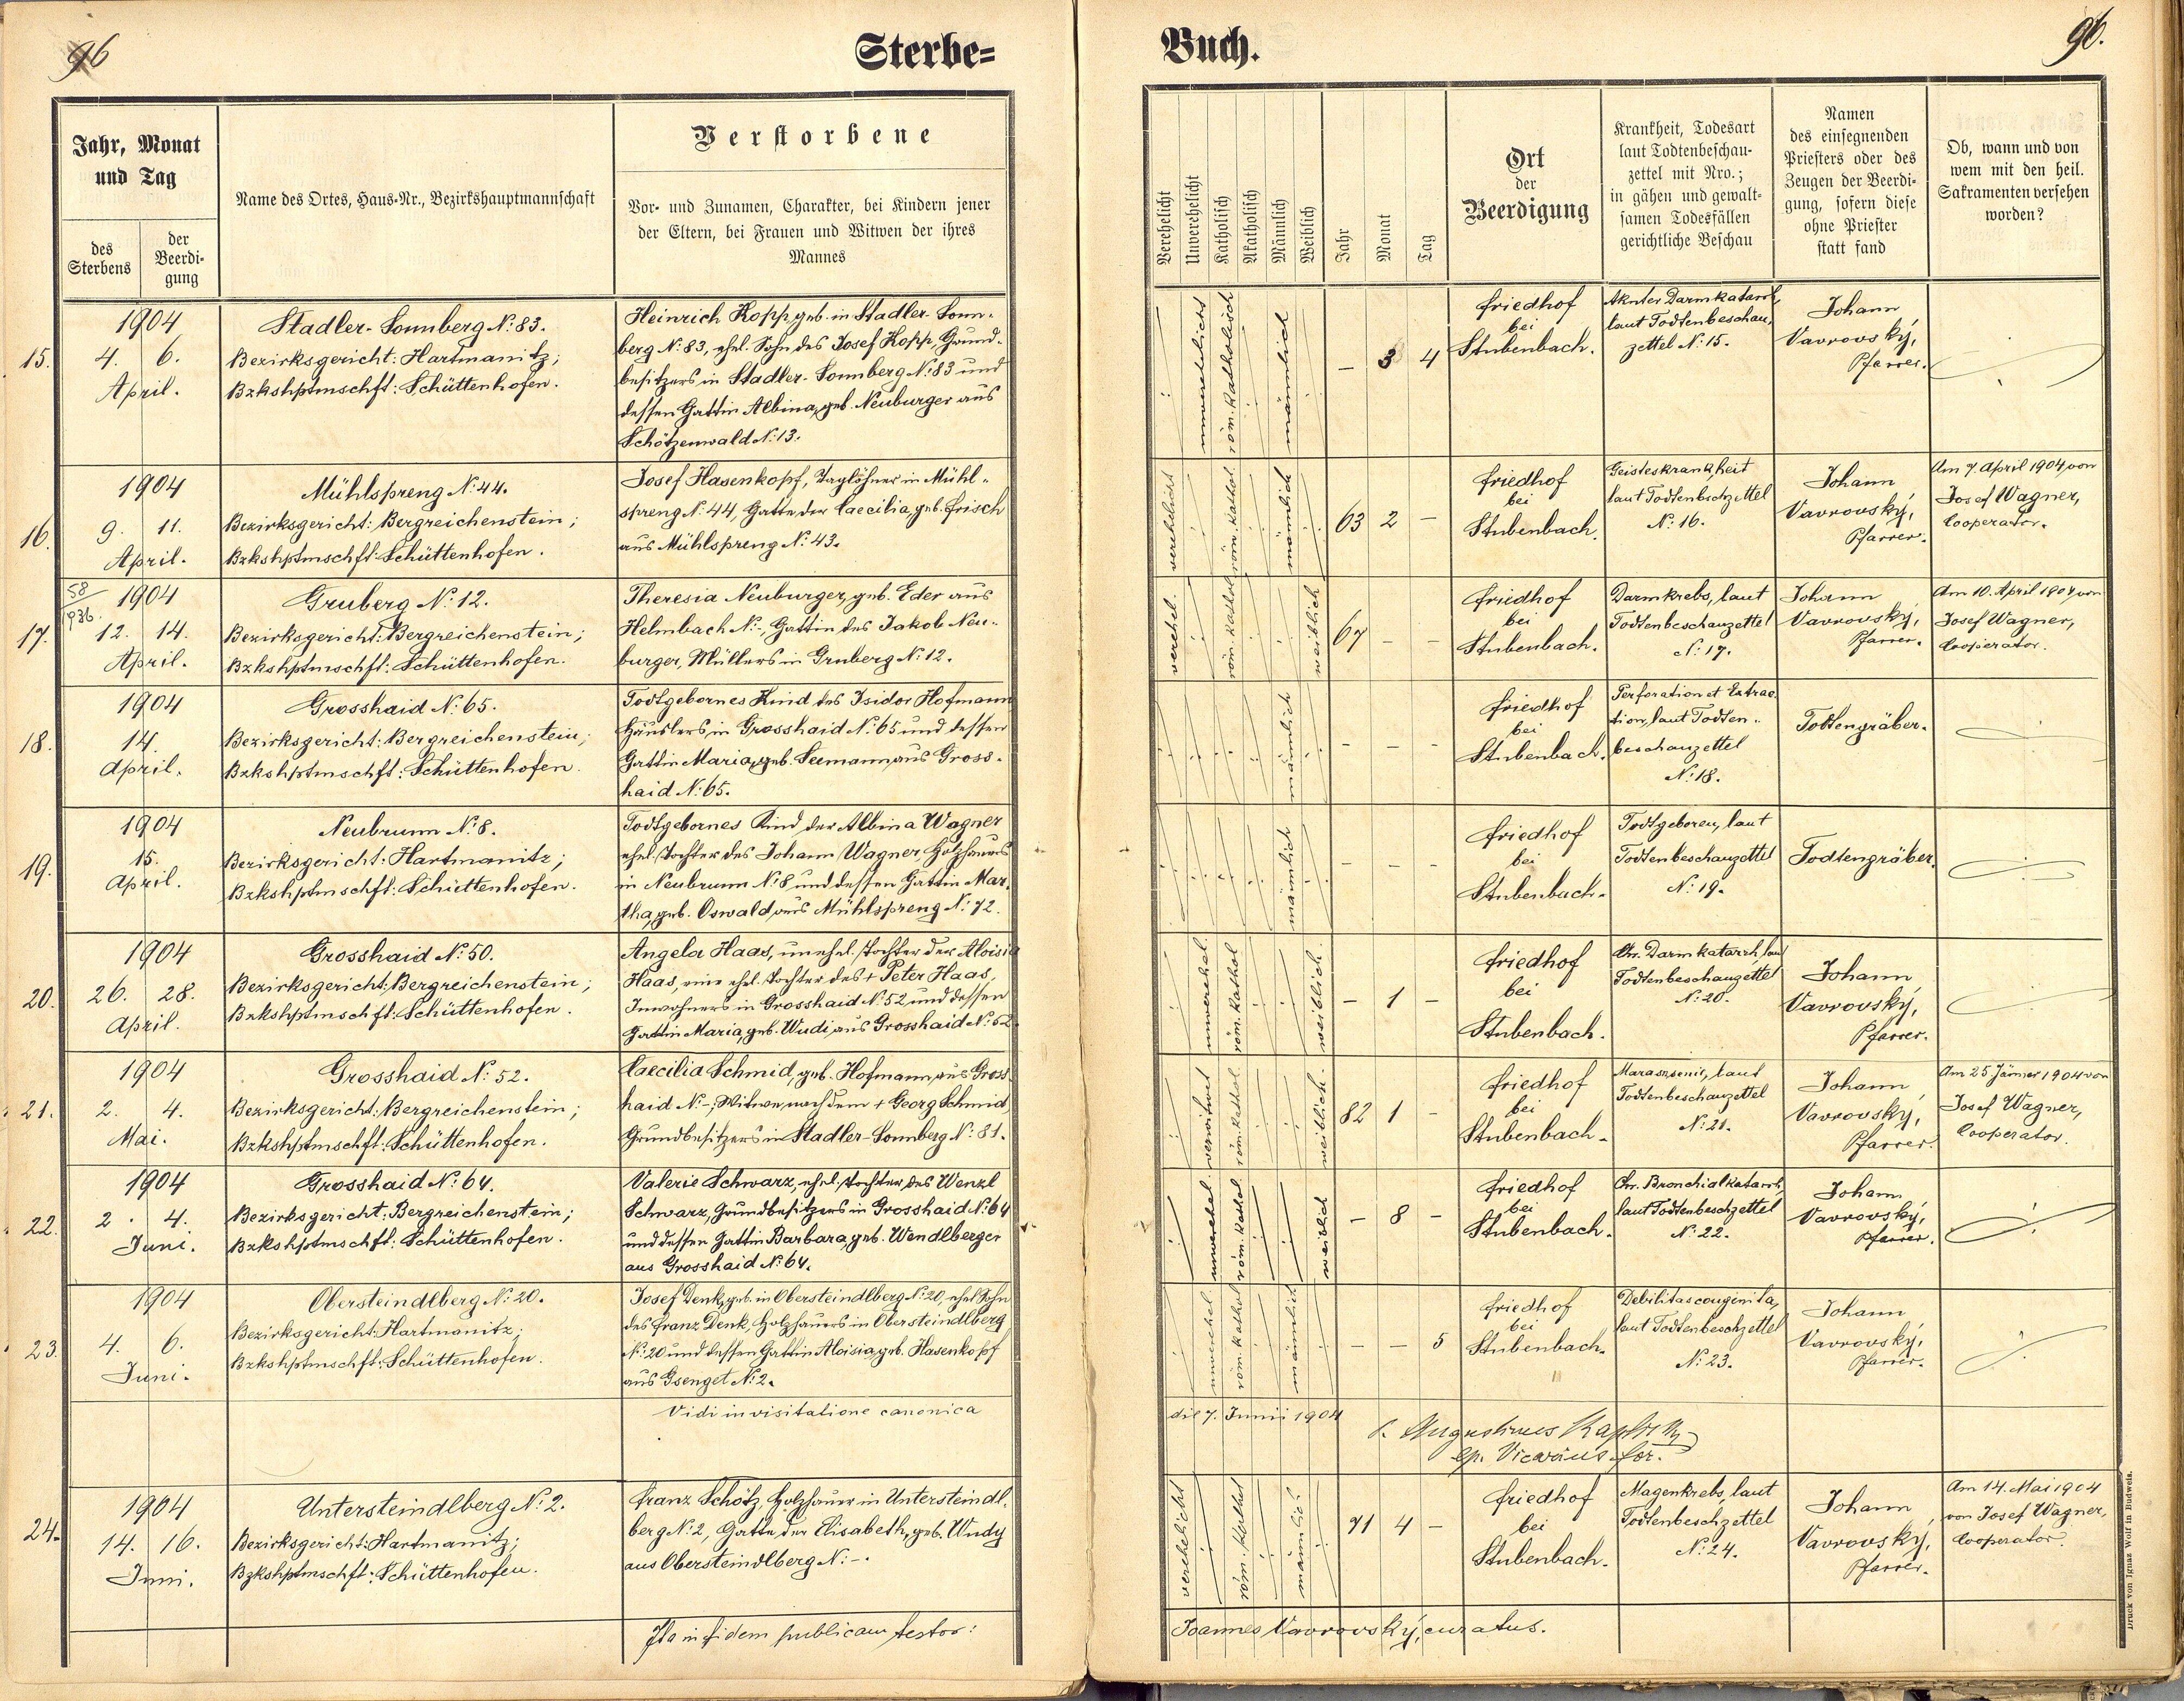 96
Sterbe=
Jahr, Monat
und Tag
des
Sterbens
der
Beerdi-
gung
Name des Ortes, Haus-Nr., Bezirkshauptmannschaft
Verstorbene
Vor- und Zunamen, Charakter, bei Kindern jener
der Eltern, bei Frauen und Witwen der ihres
Mannes
15.
1904
4. 6.
April.
Stadler-Sonnberg N: 83.
Bezirksgericht: Hartmanitz;
Bzkshptmschft: Schüttenhofen.
Heinrich Kopp, geb. in Stadler-Sonn-
berg N: 83, ehel. Sohn des Josef Kopp, Grund-
besitzers in Stadler-Sonnberg N: 83 und
dessen Gattin Albina, geb. Neuburger aus
Schötzenwald N: 13.
16.
1904
9. 11.
April.
Mühlspreng N: 44.
Bezirksgericht: Bergreichenstein;
Bzkshptmschft: Schüttenhofen.
Josef Hasenkopf, Taglöhner in Mühl-
spreng N: 44, Gatte der Caecilia, geb. Frisch
aus Mühlspreng N: 43.
17.
58/936.
1904
12. 14.
April.
Gruberg N: 12.
Bezirksgericht: Bergreichenstein;
Bzkshptmschft: Schüttenhofen.
Theresia Neuburger, geb. Eder aus
Helmbach N:-, Gattin des Jakob Neu-
burger, Müllers in Gruberg N: 12.
18.
1904
14.
April.
Grosshaid N: 65.
Bezirksgericht: Bergreichenstein;
Bzkshptmschft: Schüttenhofen.
Todtgebornes Kind des Isidor Hofmann
Häuslers in Grosshaid N: 65 und dessen
Gattin Maria, geb. Seemann, aus Gross-
haid N: 65.
19.
1904
15.
April.
Neubrunn N: 8.
Bezirksgericht: Hartmanitz;
Bzkshptmschft: Schüttenhofen.
Todtgebornes Kind der Albina Wagner
ehel. Tochter des Johann Wagner, Holzhauers
in Neubrunn N: 8 und dessen Gattin Mar-
tha, geb. Oswald aus Mühlspreng N: 72.
20.
1904
26. 28.
April.
Grosshaid N: 50.
Bezirksgericht: Bergreichenstein;
Bzkshptmschft: Schüttenhofen.
Angela Haas, unehel. Tochter der Aloisia
Haas, eine ehel. Tochter des + Peter Haas,
Inwohners in Grosshaid N: 52 und dessen
Gattin Maria, geb. Wudi aus Grosshaid N: 52.
21.
1904
2. 4.
Mai.
Grosshaid N: 52.
Bezirksgericht: Bergreichenstein;
Bzkshptmschft: Schüttenhofen.
Caecilia Schmid, geb. Hofmann, aus Gross-
haid N:-; Witwe nach dem + Georg Schmid,
Grundbesitzers in Stadler-Sonnberg N: 81.
22.
1904
2. 4.
Juni.
Grosshaid N: 64.
Bezirksgericht: Bergreichenstein;
Bzkshptmschft: Schüttenhofen.
Valerie Schwarz, ehel. Tochter des Wenzl
Schwarz, Grundbesitzers in Grosshaid N: 64
und dessen Gattin Barbara, geb. Wendlberger
aus Grosshaid N: 64.
23.
1904
4. 6.
Juni.
Obersteindlberg N: 20.
Bezirksgericht: Hartmanitz;
Bzkshptmschft: Schüttenhofen.
Josef Denk, geb. in Obersteindlberg N: 20, ehel. Sohn
des Franz Denk, Holzhauers in Obersteindlberg
N: 20 und dessen Gattin Aloisia, geb. Hasenkopf
aus Gsenget N: 2.
Vidi in visitatione canonica
24.
1904
14. 16.
Juni.
Untersteindlberg N: 2.
Bezirksgericht: Hartmanitz;
Bzkshptmschft: Schüttenhofen.
Franz Schötz, Holzhauer in Untersteindl-
berg N: 2, Gatte der Elisabeth, geb. Wudy
aus Obersteindlberg N:-.
Ita in fidem publicam testor:
Buch.
96.
Verehelicht
Unverehelicht
Katholisch
Akatholisch
Männlich
Weiblich
Jahr
Monat
Tag
Ort
der
Beerdigung
Krankheit, Todesart
laut Todtenbeschau-
zettel mit Nro.;
in gähen und gewalt-
samen Todesfällen
gerichtliche Beschau
Namen
des einsegnenden
Priesters oder des
Zeugen der Beerdi-
gung, sofern diese
ohne Priester
statt fand
Ob, wann und von
wem mit den heil.
Sakramenten versehen
worden?
unverehelicht
röm. katholisch
männlich
- 3 4
Friedhof
bei
Stubenbach.
Akuter Darmkatarrh,
laut Todtenbeschau-
zettel N: 15.
Johann
Vavrovský,
Pfarrer.
verehelicht
röm. kathol.
männlich
63 2 -
Friedhof
bei
Stubenbach.
Geisteskrankheit
laut Todtenbschzettel
N: 16.
Johann
Vavrovský,
Pfarrer.
Am 7. April 1904, von
Josef Wagner,
Cooperator.
verehel.
röm. kathol.
weiblich
67 - -
Friedhof
bei
Stubenbach.
Darmkrebs, laut
Todtenbeschauzettel
N: 17.
Johann
Vavrovský,
Pfarrer.
Am 10. April 1904, von
Josef Wagner,
Cooperator.
männlich
- - -
Friedhof
bei
Stubenbach.
Perforation et Extrac-
tion, laut Todten-
beschauzettel
N: 18.
Todtengräber.
männlich
- - -
Friedhof
bei
Stubenbach.
Todtgeboren, laut
Todtenbeschauzettel
N: 19.
Todtengräber.
unverehel.
röm. kathol
weiblich.
- 1 -
Friedhof
bei
Stubenbach.
Chr. Darmkatarrh, laut
Todtenbeschauzettel
N: 20.
Johann
Vavrovský,
Pfarrer.
verwitwet
röm. kathol
weiblich.
82 1 -
Friedhof
bei
Stubenbach.
laut
Todtenbeschauzettel
N: 21.
Johann
Vavrovský,
Pfarrer.
Am 25 Jänner 1904 von
Josef Wagner,
Cooperator.
unverehel
röm. kathol
weiblich
- 8 -
Friedhof
bei
Stubenbach.
Chr. Bronchialkatarrh,
laut Todtenbeschzettel
N: 22.
Johann
Vavrovský,
Pfarrer.
unverehel.
röm kathol
männlich
- - 5
Friedhof
bei
Stubenbach.
Debilitas congenita,
laut Todtenbeschzettel
N: 23.
Johann
Vavrovský,
Pfarrer.
die 7. Junii 1904
Augustinus
ep. Vicarius for.
verehelicht
röm. kathol
männlich
71 4 -
Friedhof
bei
Stubenbach.
Magenkrebs, laut
Todtenbeschzettel
N: 24.
Johann
Vavrovský,
Pfarrer.
Am 14. Mai 1904
von Josef Wagner,
Cooperator.
Joannes Vavrovský, curatus.
Druck von Ignaz Wolf in Budweis.